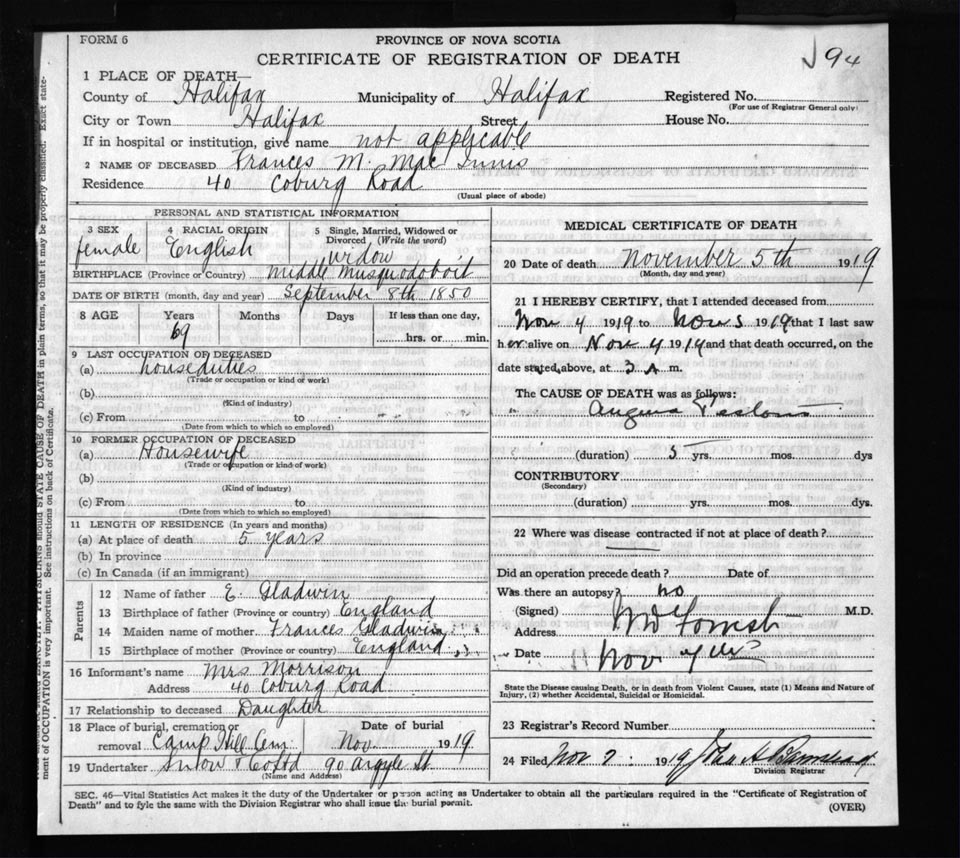 FORM 6
PROVINCE OF NOVA SCOTIA
CERTIFICATE OF REGISTRATION OF DEATH
94
1 PLACE OF DEATH—
County of Halifax Municipality of Halifax Registered No.
(For use of Registrar General only)
City or Town Halifax Street House No.
If in hospital or institution, give name not applicable
2 NAME OF DECEASED Frances M. Mac Innis
Residence 40 Coburg Road
(Usual place of abode)
PERSONAL AND STATISTICAL INFORMATION
3 SEX 4 RACIAL ORIGIN 5 Single, Married, Widowed or Divorced (Write the word)
female English widow
BIRTHPLACE (Province or Country) Middle Musquodoboit
DATE OF BIRTH (month, day and year) September 8th 1850
8 AGE Years Months Days If less than one day,
69 hrs. or min.
9 LAST OCCUPATION OF DECEASED
(a) houseduties
(Trade or occupation or kind or work)
(b)
(Kind of industry)
(c) From to
(Date from which to which so employed)
10 FORMER OCCUPATION OF DECEASED
(a) Housewife
(Trade or occupation or kind of work)
(b)
(Kind of industry)
(c) From to
(Date from which to which so employed)
11 LENGTH OF RESIDENCE (In years and months)
(a) At place of death 5 years
(b) In province
(c) In Canada (if an immigrant)
Parents
12 Name of father E. Gladwin
13 Birthplace of father (Province or country) England
14 Maiden name of mother Frances Gladwin
15 Birthplace of mother (Province or country) England
16 Informant's name Mrs Morrison
Address 40 Coburg Road
17 Relationship to deceased Daughter
18 Place of burial, cremation or removal Camp Hill Cem Date of burial Nov. 1919
19 Undertaker Snow & Co Ltd 90 Argyle St
(Name and Address)
MEDICAL CERTIFICATE OF DEATH
20 Date of death November 5th 1919
(Month, day and year)
21 I HEREBY CERTIFY, that I attended deceased from
Nov 4 1919 to Nov 5 1919 that I last saw
her alive on Nov 4 1919 and that death occurred, on the
date stated above, at 3 A m.
The CAUSE OF DEATH was as follows:
Angina
(duration) 5 yrs. mos. dys
CONTRIBUTORY
(Secondary)
(duration) yrs. mos. dys.
22 Where was disease contracted if not at place of death?
Did an operation precede death? Date of
Was there an autopsy? no
(Signed) M.D.
Address
Date Nov 7th
State the Disease causing Death, or in death from Violent Causes, state (1) Means and Nature of
Injury, (2) whether Accidental, Suicidal or Homicidal.
23 Registrar's Record Number
24 Filed Nov 7 1919 John A
Division Registrar
SEC. 46—Vital Statistics Act makes it the duty of the Undertaker or person acting as Undertaker to obtain all the particulars required in the "Certificate of Registration of
Death" and to fyle the same with the Division Registrar who shall issue the burial permit.
(OVER)
PHYSICIANS should STATE CAUSE OF DEATH in plain terms, so that it may be properly classified. Exact state-
ment of OCCUPATION is very important. See instructions on back of Certificate.